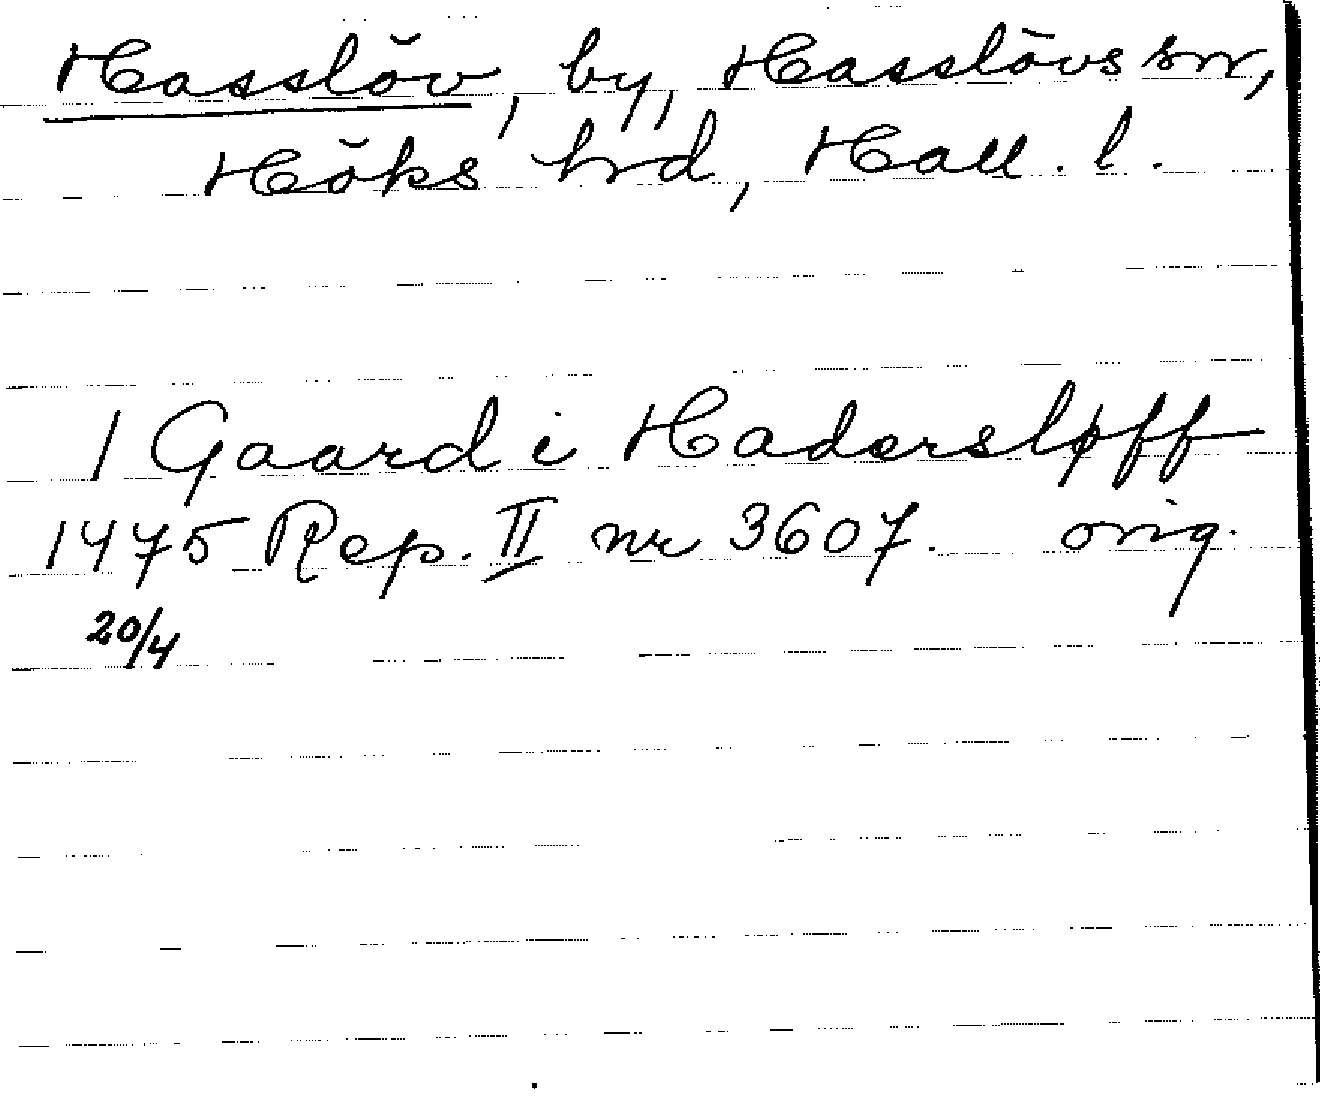 Hasslöv, by, Hasslövs snr,
Höks hrd, Hall. l.
1 Gaard i Hadersløff
1475 Rep. II nr 3607. orig.
20/4